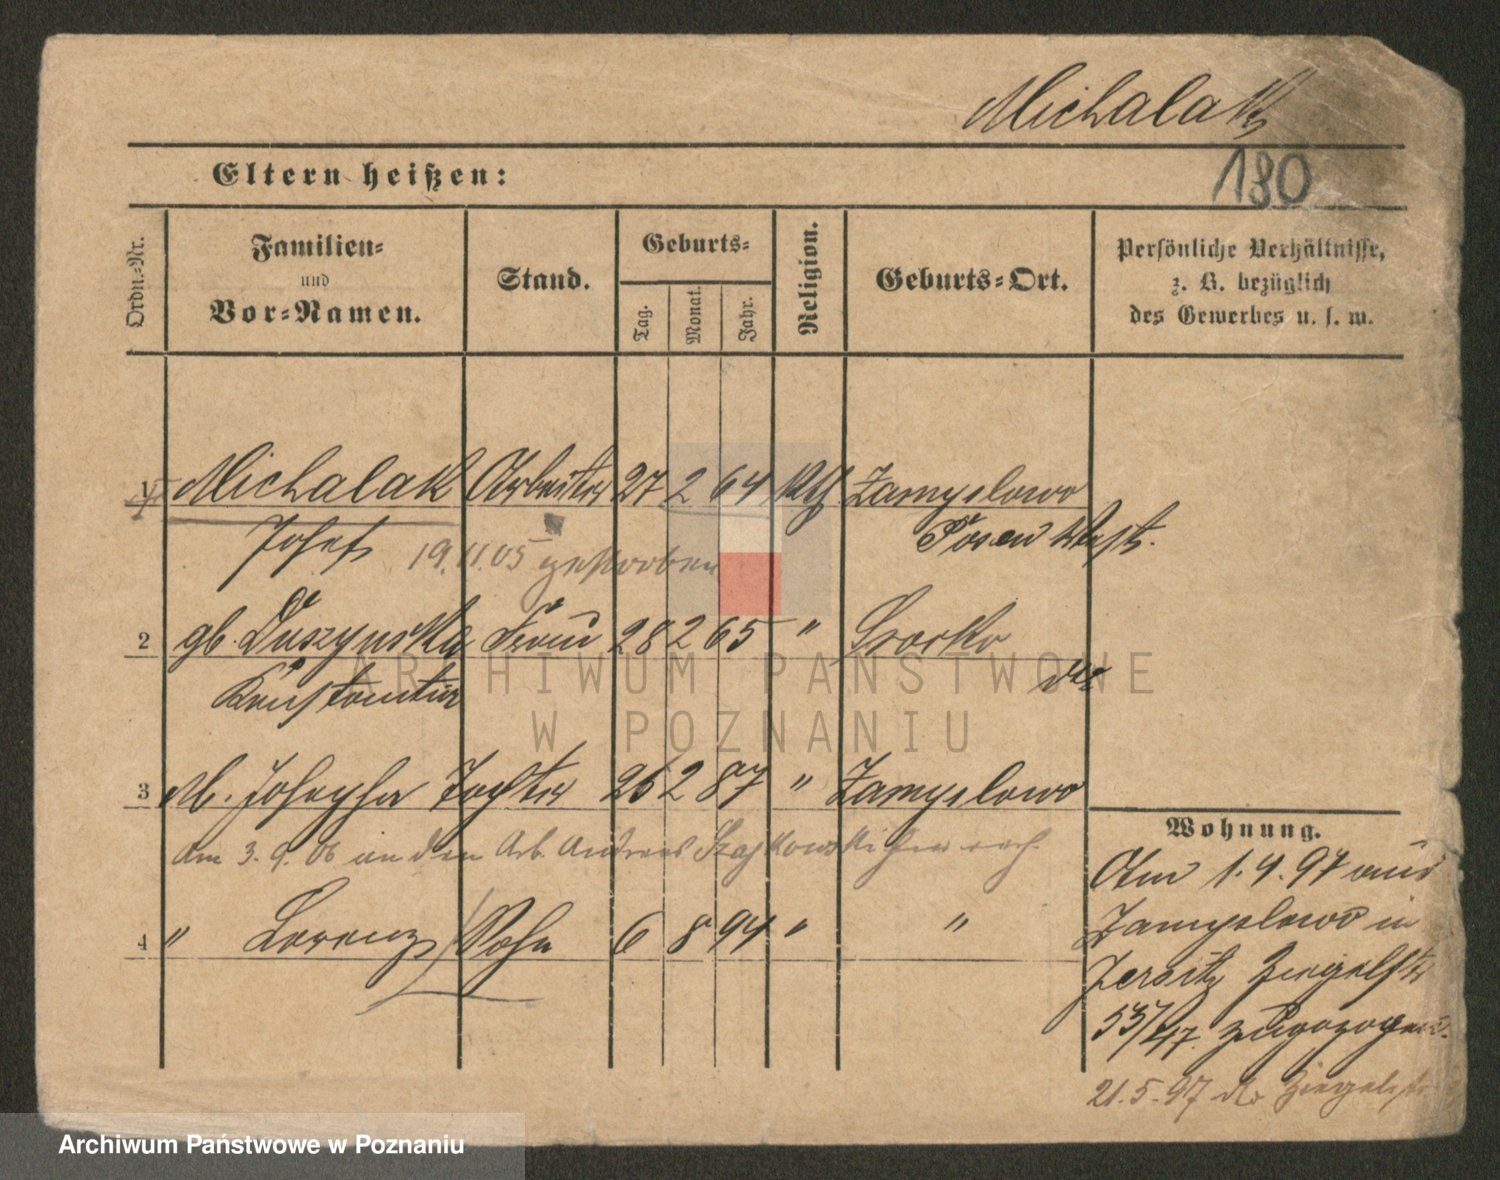 Michalak
180
Eltern heißen:
Ordn.-Nr.
Familien-
und
Vor-Namen.
Stand.
Geburts-
Tag.
Monat.
Jahr.
Religion.
Geburts-Ort.
Persönliche Verhältnisse,
z. B. bezüglich
des Gewerbes u. s. w.
1 Michalak Arbeiter 27 2 64 Kth Zamyslowo
Josef Posen West.
19.11.05 gestorben
2 gb. Duszynska Frau 28 2 65 " Srocko
Konstantia do
3 M. Josepha Tochter 26 2 87 " Zamyslowo
Am 3.9.06 an den Arb. Andreas Szajkowski
4 " Lorenz Sohn 6 8 94 " "
Wohnung.
Am 1.4.97 aus
Zamyslowo in
Jersitz Ziegelstr
53/47. zugezogen.
21.5.97 do Ziegelstr
ARCHIWUM PAŃSTWOWE
W POZNANIU
Archiwum Państwowe w Poznaniu